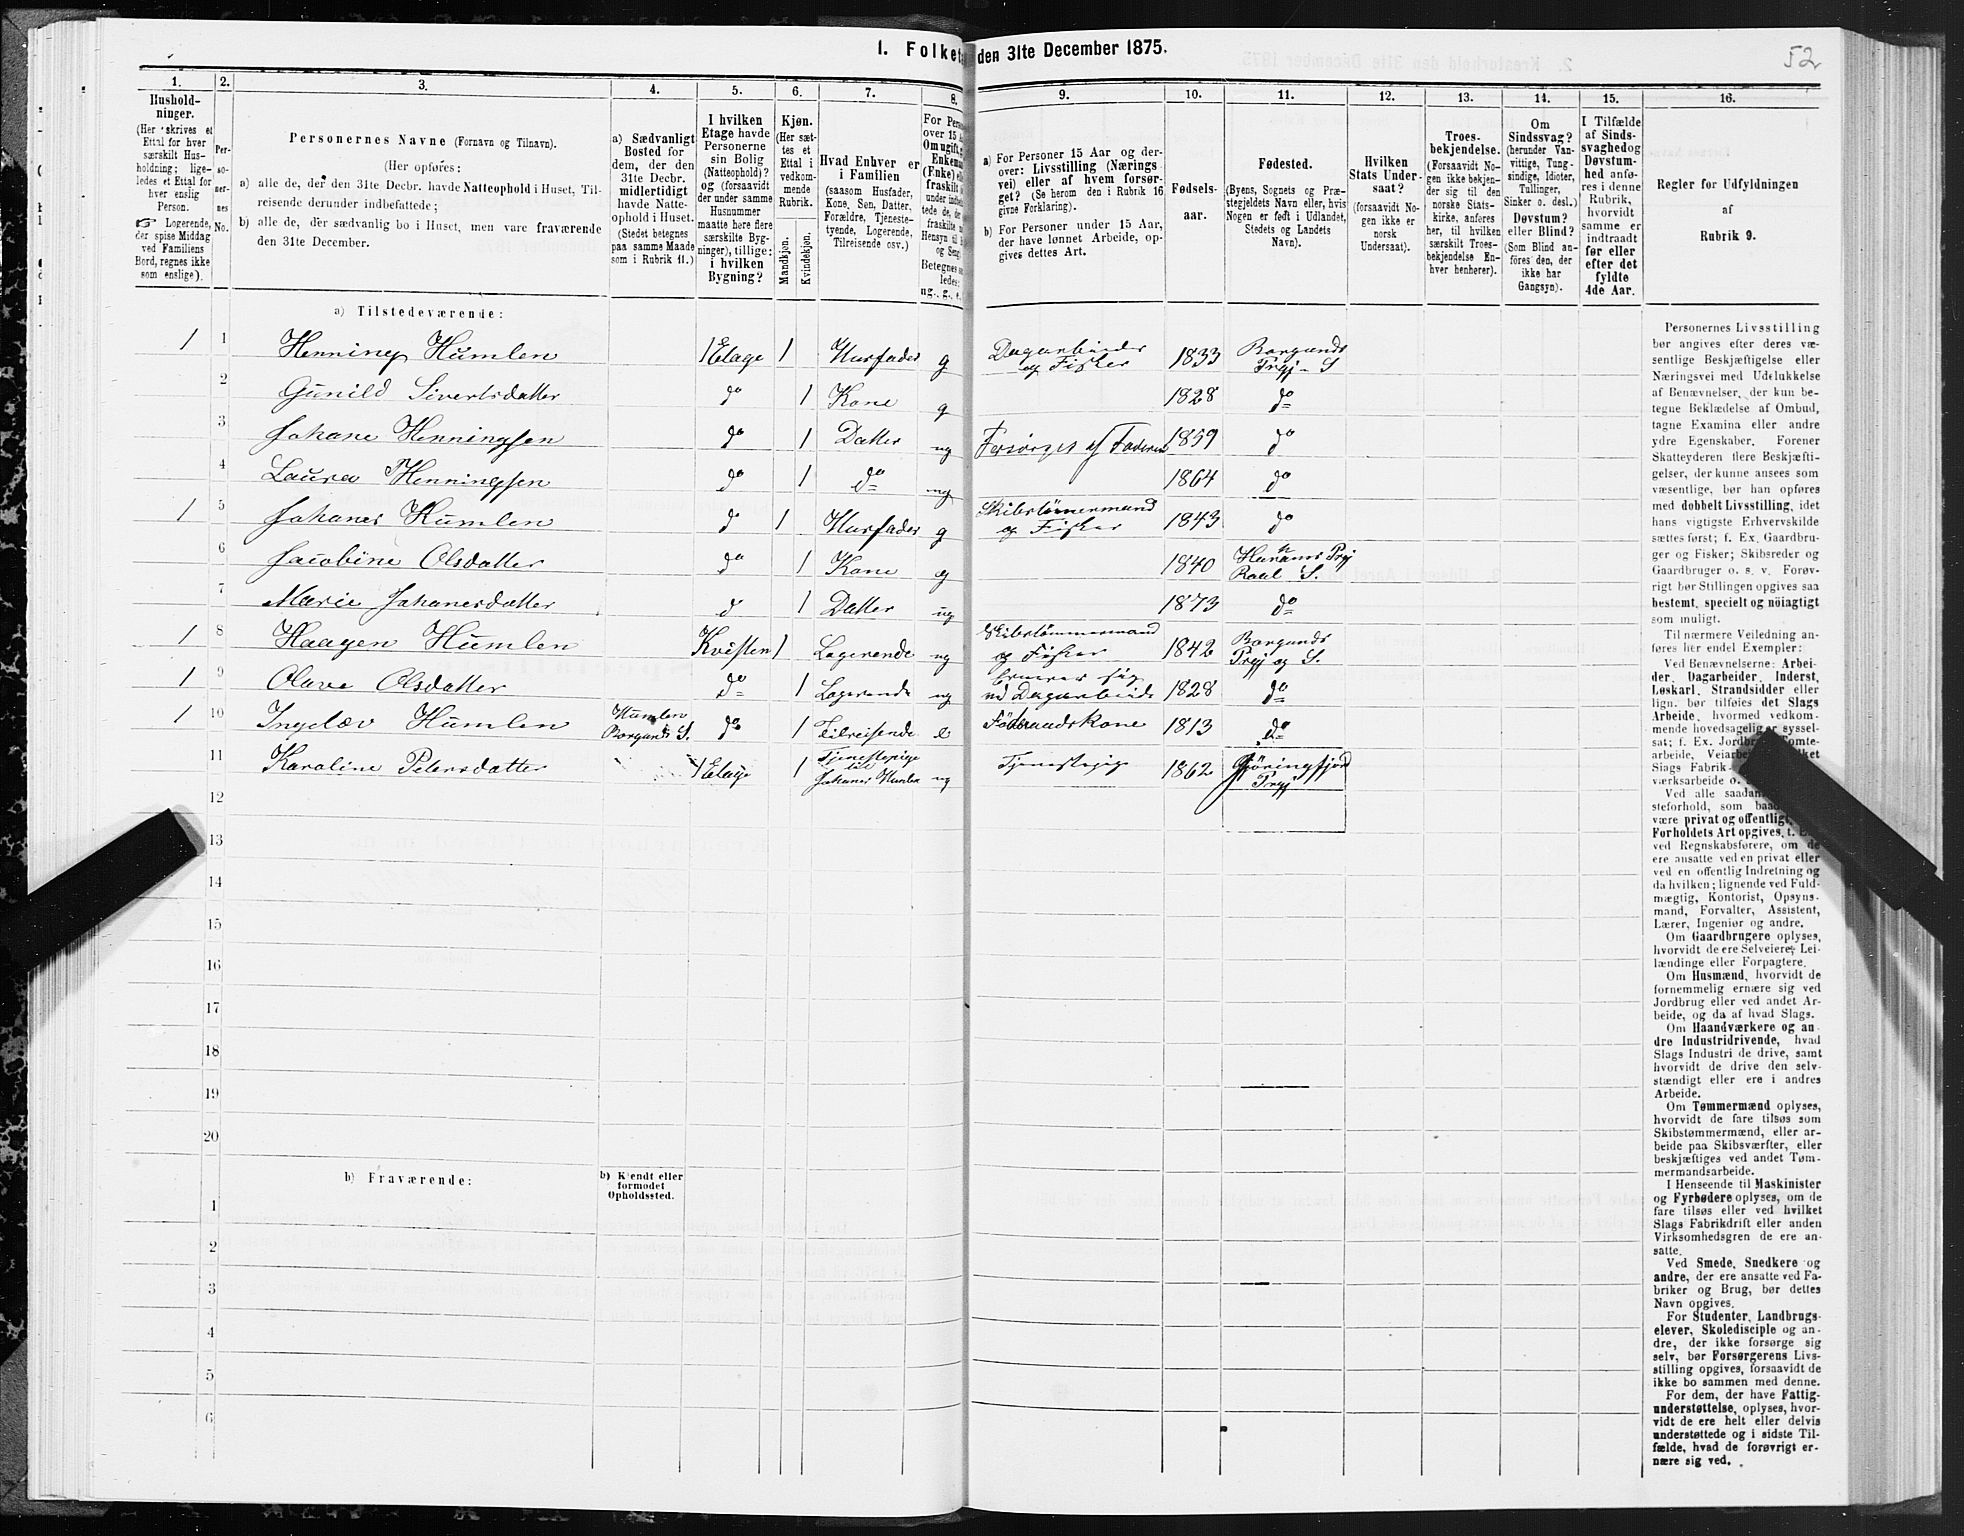 1. Folket den 31te December 1875.
52
1. 2. 3. 4. 5. 6. 7. 8. 9. 10. 11. 12. 13. 14. 15. 16.
Hushold-
ninger.
(Her skrives et
Ettal for hver
særskilt Hus-
holdning; lige-
ledes et Ettal for
hver enslig
Person.
☞ Logerende,
der spise Middag
ved Familiens
Bord, regnes ikke
som enslige).
Per-
so-
ner-
nes
No.
Personernes Navne (Fornavn og Tilnavn).
(Her opføres:
a) alle de, der den 31te Decbr. havde Natteophold i Huset, Til-
reisende derunder indbefattede;
b) alle de, der sædvanlig bo i Huset, men vare fraværende
den 31te December.
a) Sædvanligt
Bosted for
dem, der den
31te Decbr.
midlertidigt
havde Natte-
ophold i Huset.
(Stedet betegnes
paa samme Maade
som i Rubrik 11.)
I hvilken
Etage havde
Personerne
sin Bolig
(Natteophold)?
og (forsaavidt
der under samme
Husnummer
maatte høre flere
særskilte Byg-
ninger), tillige:
i hvilken
Bygning?
Kjøn.
(Her sæt-
tes et
Ettal i
vedkom-
mende
Rubrik.
Mandkjøn.
Kvindekjøn.
Hvad Enhver er
i Familien
(saasom Husfader,
Kone, Søn, Datter,
Forældre, Tjeneste-
tyende, Logerende,
Tilreisende osv.)
For Pers
over 15 A
Om ugift, g
Enkema
(Enke) el
fraskilt
a) For Personer 15 Aar og der-
over: Livsstilling (Nærings
vei) eller af hvem forsør-
get? (Se herom den i Rubrik 16
givne Forklaring).
b) For Personer under 15 Aar,
der have lønnet Arbeide, op-
gives dettes Art.
Fødsels-
aar.
Fødested.
(Byens, Sognets og Præ-
stegjeldets Navn eller, hvis
Nogen er født i Udlandet,
Stedets og Landets
Navn).
Hvilken
Stats Under-
saat?
(forsaavidt No-
gen ikke er
norsk
Undersaat).
Troes-
bekjendelse.
(Forsaavidt No-
gen ikke bekjen-
der sig til den
norske Stats-
kirke, anføres
her, til hvilken
særskilt Troes-
bekjendelse En-
hver henhører).
Om
Sindssvag?
(herunder Van-
vittige, Tung-
sindige, Idioter,
Tullinger,
Sinker o. desl.)
Døvstum?
eller Blind?
(Som Blind an-
føres den, der
ikke har
Gangsyn).
I Tilfælde
af Sinds-
svaghed og
Døvstum-
hed anfø-
res i denne
Rubrik,
hvorvidt
samme er
indtraadt
før eller
efter det
fyldte
4de Aar.
Regler for Udfyldningen
af
Rubrik 9.
a) Tilstedeværende:
1 1 Henning Humlen 1 Etage 1 Husfader g Dagarbeider og Fisker 1833 Borgunds Prgj - S
2 Gunild Sivertsdatter do 1 Kone g 1828 do
3 Johane Henningsen do 1 Datter ug Forsørget af Faderen 1859 do
4 Laura Henningsen do 1 do ug 1864 do
1 5 Johanes Humlen d 1 Husfader g Skibstömmermand og Fisker 1843 do
6 Jacobine Olsdatter do 1 Kone g 1840 Harams Prgj S.
7 Marie Johanesdatter d 1 Datter ug 1873 do
1 8 Haagen Humlen Kvisten 1 Logerende ug Skibstömmermand og Fisker 1842 Borgunds Prgj og S.
1 9 Olave Olsdatter do 1 Logerende ug Ernærer sig ved Dagarbeide 1828 do
1 10 Humlen Humlen Borgunds S. do 1 Tilreisende e Föderaadskone 1813 do
11 Karoline Petersdatter 1 Etage 1 Tjenestepige Johanes Humlen ug Tjenestepige 1862 Prgj
12
13
14
15
16
17
18
19
20
b) Fraværende:
b) Kjendt eller
formodet
Opholdssted.
1
2
3
4
5
6
Personernes Livsstilling
bør angives efter deres væ-
sentlige Beskjæftigelse eller
Næringsvei med Udelukkelse
af Benævnelser, der kun be-
tegne Beklædelse af Ombud,
tagne Examina eller andre
ydre Egenskaber. Forener
Skatteyderen flere Beskjæfti-
gelser, der kunne ansees som
væsentlige, bør han opføres
med dobbelt Livsstilling, idet
hans vigtigste Erhvervskilde
sættes først; f. Ex. Gaardbru-
ger og Fisker; Skibsreder og
Gaardbruger o. s. v. Forøv-
rigt bør Stillingen opgives saa
bestemt, specielt og nöiagtigt
som muligt.
Til nærmere Veiledning an-
føres her endel Exempler:
Ved Benævnelserne: Arbei-
der, Dagarbeider, Inderst,
Løskarl, Strandsidder eller
lign. bør tilføies det Slags
Arbeide, hvormed vedkom-
mende hovedsagelig er syssel-
sat; f. Ex. Jordbrug, Tomte-
arbeide,
Slags Fabrik-
værksarbeide o.
Ved alle
steforhold, som
være privat og offentlig,
Forholdets Art opgives, t. Ex.
ved Regnskabsførere, om de
ere ansatte ved en privat eller
ved en offentlig Indretning og
da hvilken; lignende ved Fuld-
mægtig, Kontorist, Opsyns-
mand, Forvalter, Assistent,
Lærer, Ingeniør og andre.
Om Gaardbrugere oplyses,
hvorvidt de ere Selveiere, Lei-
lændinge eller Forpagtere.
Om Husmænd, hvorvidt de
fornemmelig ernære sig ved
Jordbrug eller ved andet Ar-
beide, og da af hvad Slags.
Om Haandværkere og an-
dre Industridrivende, hvad
Slags Industri de drive, samt
hvorvidt de drive den selv-
stændigt eller ere i andres
Arbeide.
Om Tømmermænd oplyses,
hvorvidt de fare tilsøs som
Skibstømmermænd, eller ar-
beide paa Skibsværfter, eller
beskjæftiges ved andet Tøm-
mermandsarbeide.
I Henseende til Maskinister
og Fyrbødere oplyses, om de
fare tilsøs eller ved hvilket
Slags Fabrikdrift eller anden
Virksomhedsgren de ere an-
satte.
Ved Smede, Snedkere og
andre, der ere ansatte ved Fa-
briker og Brug, bør dettes
Navn opgives.
For Studenter, Landbrugs-
elever, Skoledisciple og an-
dre, der ikke forsørge sig
selv, bør Forsørgerens Livs-
stilling opgives, forsaavidt de
ikke bo sammen med denne.
For dem, der have Fattig-
understøttelse, oplyses, hvor-
vidt de ere helt eller delvis
understøttede og i sidste Til-
fælde, hvad de forøvrigt er-
nære sig ved.